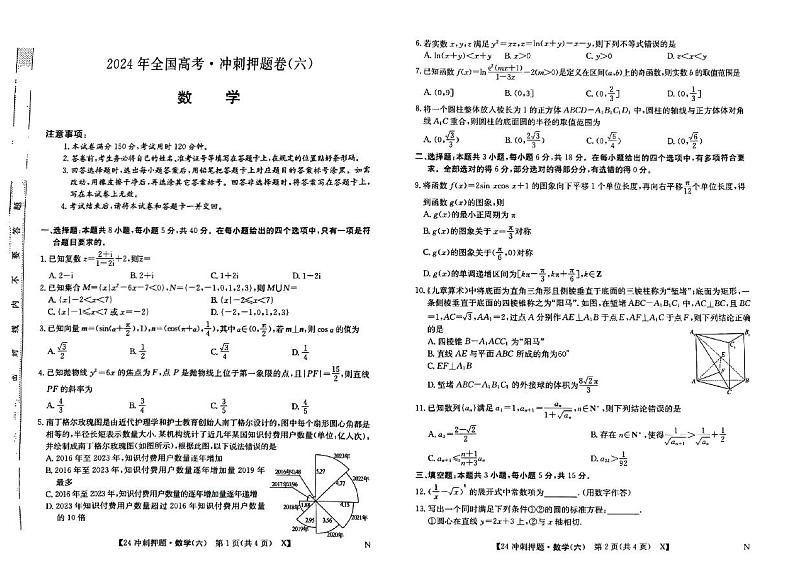 2024年全国高考·冲刺押题卷(六)
数 学
注意事项:
1.本试卷满分150分,考试用时120分钟。
2.答卷前,考生务必将自己的姓名、准考证号等填写在答题卡上,在规定的位置贴好条形码。
3.回答选择题时,选出每小题答案后,用铅笔把答题卡上对应题目的答案标号涂黑。如需
改动,用橡皮擦干净后,再选涂其它答案标号。回答非选择题时,将答案写在答题卡上,
写在本试卷上无效。
4.考试结束后,请将本试卷和答题卡一并交回。
一、选择题:本题共8小题,每小题5分,共40分。在每小题给出的四个选项中,只有一项是符
合题目要求的。
1.已知复数z=(2+i)/(1-2i)+2,则z̄=
A.2-i B.2+i C.1+2i D.1-2i
2.已知集合M={x|x²-6x-7<0},N={-2,-1,0,1,2,3},则M∪N=
A.{x|-2<x<7} B.{x|-2≤x<7}
C.{x|-1<x<7或x=-2} D.{-2,-1,0,1,2,3}
3.已知向量m=(sin(α+π/2),1),n=(cos(π+α),1/4),其中α∈(0,π/2),若m⊥n,则cos α的值为
A.√3/2 B.1/2 C.√3/4 D.1/4
4.已知抛物线y²=6x的焦点为F,点P是抛物线上位于第一象限的点,且|PF|=15/2,则直线
PF的斜率为
A.4/3 B.3/4 C.3/5 D.4/5
5.南丁格尔玫瑰图是由近代护理学和护士教育创始人南丁格尔设计的,图中每个扇形圆心角都是
相等的,半径长短表示数量大小.某机构统计了近几年某国知识付费用户数量(单位:亿人次),
并绘制成南丁格尔玫瑰图(如图所示),根据此图,以下说法错误的是
A.2016年至2023年,知识付费用户数量逐年增加
B.2016年至2023年,知识付费用户数量逐年增加量2019年
最多
C.2016年至2023年,知识付费用户数量的逐年增加量逐年递增
D.2023年知识付费用户数量超过2016年知识付费用户数量
的10倍
2023年
2016年0.48
5.27
2022年
2017年0.96
4.77
4.15
2018年
1.88
2021年
2.95
3.56
2019年
2020年
【24 冲刺押题·数学(六) 第1页(共4页) X】
N
6.若实数x,y,z满足y²=xz,z=ln(x+y)-x-y,则下列不等式错误的是
A.ln(x+y)<x+y B.x>0 C.y>0 D.z<x<y
7.已知函数f(x)=ln e²(mx+1)/(1-3x)-2(m>0)是定义在区间(a,b)上的奇函数,则实数b的取值范围是
A.(0,9] B.(0,3] C.(0,2/3] D.(0,1/3]
8.将一个圆柱整体放入棱长为1的正方体ABCD-A₁B₁C₁D₁中,圆柱的轴线与正方体体对角
线A₁C重合,则圆柱的底面圆的半径的取值范围为
A.(0,√3/3) B.(0,2√3/3) C.(0,√5/4) D.(0,√6/2)
二、选择题:本题共3小题,每小题6分,共18分。在每小题给出的四个选项中,有多项符合要
求。全部选对的得6分,部分选对的得部分分,有选错的得0分。
9.将函数f(x)=2sin xcos x+1的图象向下平移1个单位长度,再向右平移π/12个单位长度,得
到函数g(x)的图象,则
A.g(x)的最小正周期为π
B.g(x)的图象关于x=π/3对称
C.g(x)的图象关于(π/6,0)对称
D.g(x)的单调递增区间为[kπ-π/3,kπ+π/6],k∈Z
10.《九章算术》中将底面为直角三角形且侧棱垂直于底面的三棱柱称为“堑堵”;底面为矩形,一
条侧棱垂直于底面的四棱锥称之为“阳马”.如图,在堑堵ABC-A₁B₁C₁中,AC⊥BC,且BC
=1,AC=√3,AA₁=2,过点A分别作AE⊥A₁B于点E,AF⊥A₁C于点F,则下列结论正确
的是
A.四棱锥B-A₁ACC₁为“阳马”
B.直线AE与平面ABC所成的角为60°
C.EF⊥A₁B
D.堑堵ABC-A₁B₁C₁的外接球的体积为8√2π/3
A₁
B₁
C₁
E
F
A
B
C
11.已知数列{aₙ}满足a₁=1,aₙ₊₁=aₙ/(1+√aₙ),n∈N*,则下列结论错误的是
A.a₃=(2-√2)/2
B.存在n∈N*,使得1/√aₙ₊₁>1/√aₙ+1/2
C.aₙ₊₁≤(n+1)/(n+3)aₙ
三、填空题:本题共3小题,每小题5分,共15分。
12.(1/x-√x)⁶的展开式中常数项为______.(用数字作答)
13.写出一个同时满足下列条件①②的圆的标准方程:______.
①圆心在直线y=2x+3上,②与x轴相切.
【24 冲刺押题·数学(六) 第2页(共4页) X】
N